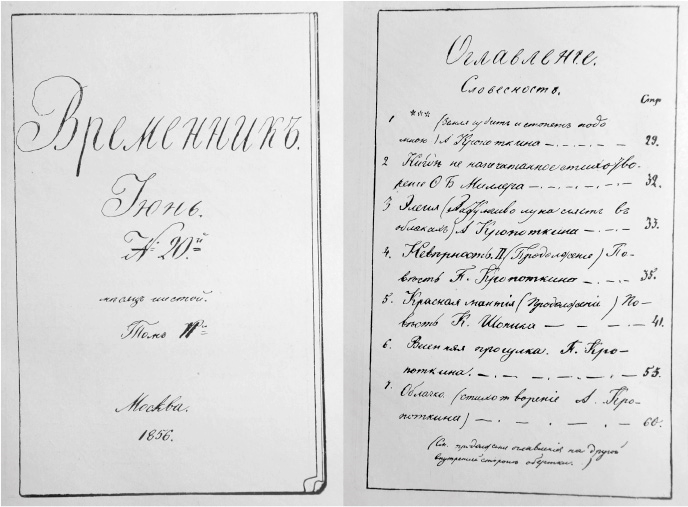 Временникъ.
Іюнь.
№ 20.й
мѣсяцъ шестой.
Томъ
Москва.
1856.
Оглавленіе.
Словесность.
Стр
1 *** (Земля и стонетъ подо
мною) А Кропоткина 29.
2 Нигдѣ не напечатанное стихотво-
реніе О Б Миллера 32.
3 Элегія ( луна сіяетъ въ
облакахъ) А Кропоткина 33.
4. Невѣрность. II (Продолженіе) По-
вѣсть П. Кропоткина 35.
5. Красная мантія (Продолженіе) По-
вѣсть К. Шопика 41.
6. прогулка. П. Кро-
поткина. 53.
7. Облачко. (стихотвореніе А. Кро-
поткина) 60.
(См. продолженіе оглавленія на другой
внутренней сторонѣ обертки.)